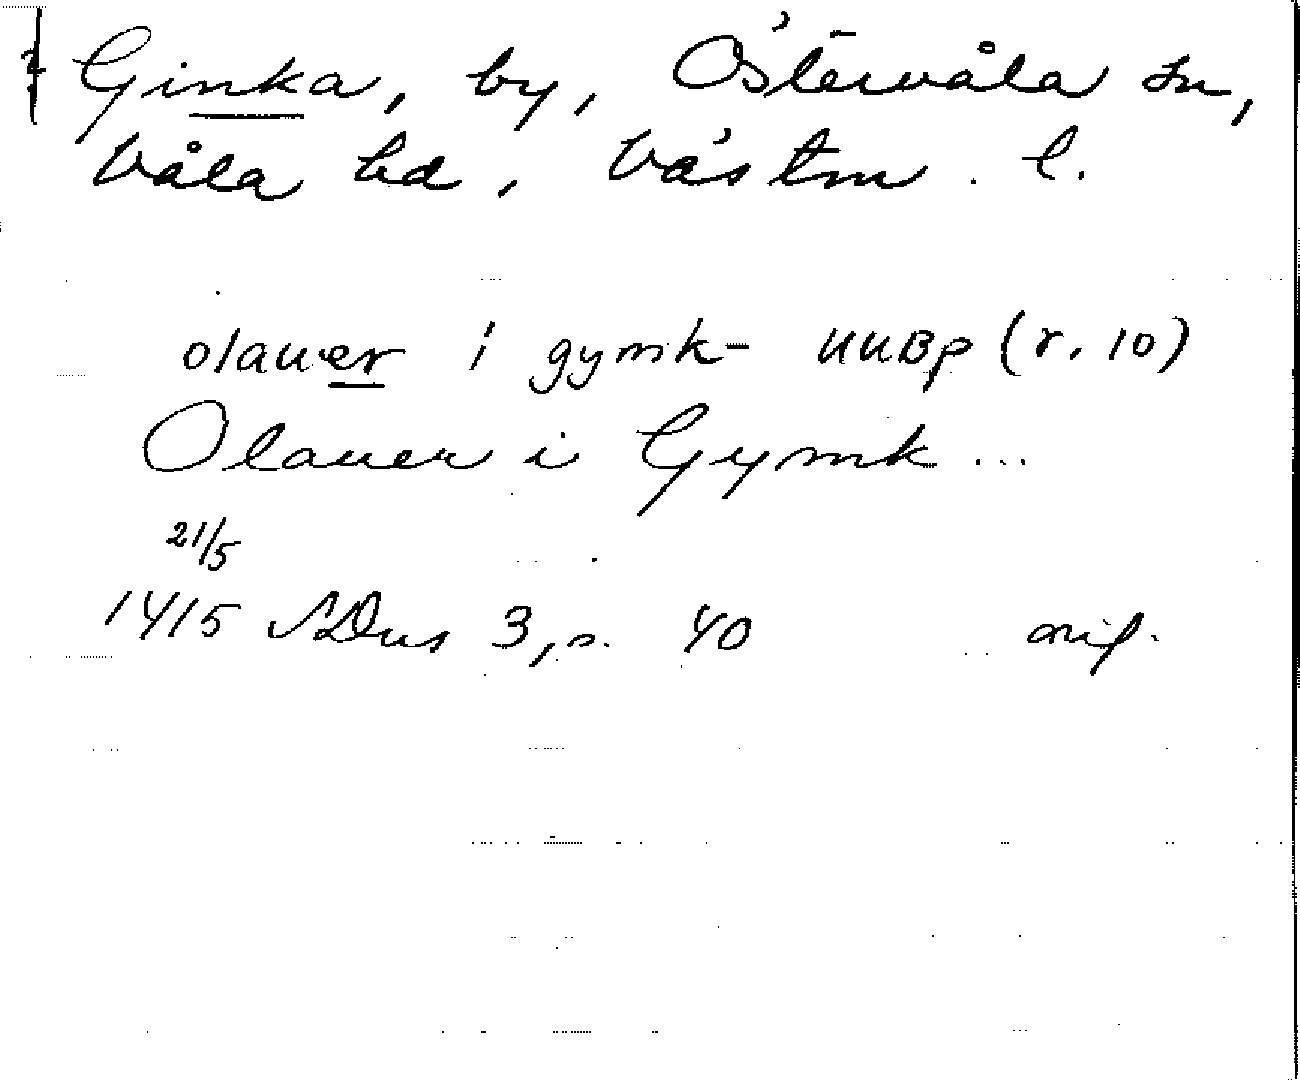 Ginka, by, Östervåla sn,
Våla hd, Västm. l.
olauer i gymk- UUBp (r. 10)
Olauer i Gymk...
21/5
1415 SDns 3, s. 40 orig.